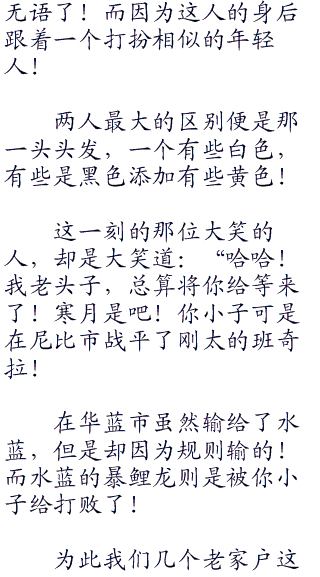 无语了！而因为这人的身后
跟着一个打扮相似的年轻
人！
两人最大的区别便是那
一头头发，一个有些白色，
有些是黑色添加有些黄色！
这一刻的那位大笑的
人，却是大笑道：“哈哈！
我老头子，总算将你给等来
了！寒月是吧！你小子可是
在尼比市战平了刚太的班奇
拉！
在华蓝市虽然输给了水
蓝，但是却因为规则输的！
而水蓝的暴鲤龙则是被你小
子给打败了！
为此我们几个老家户这